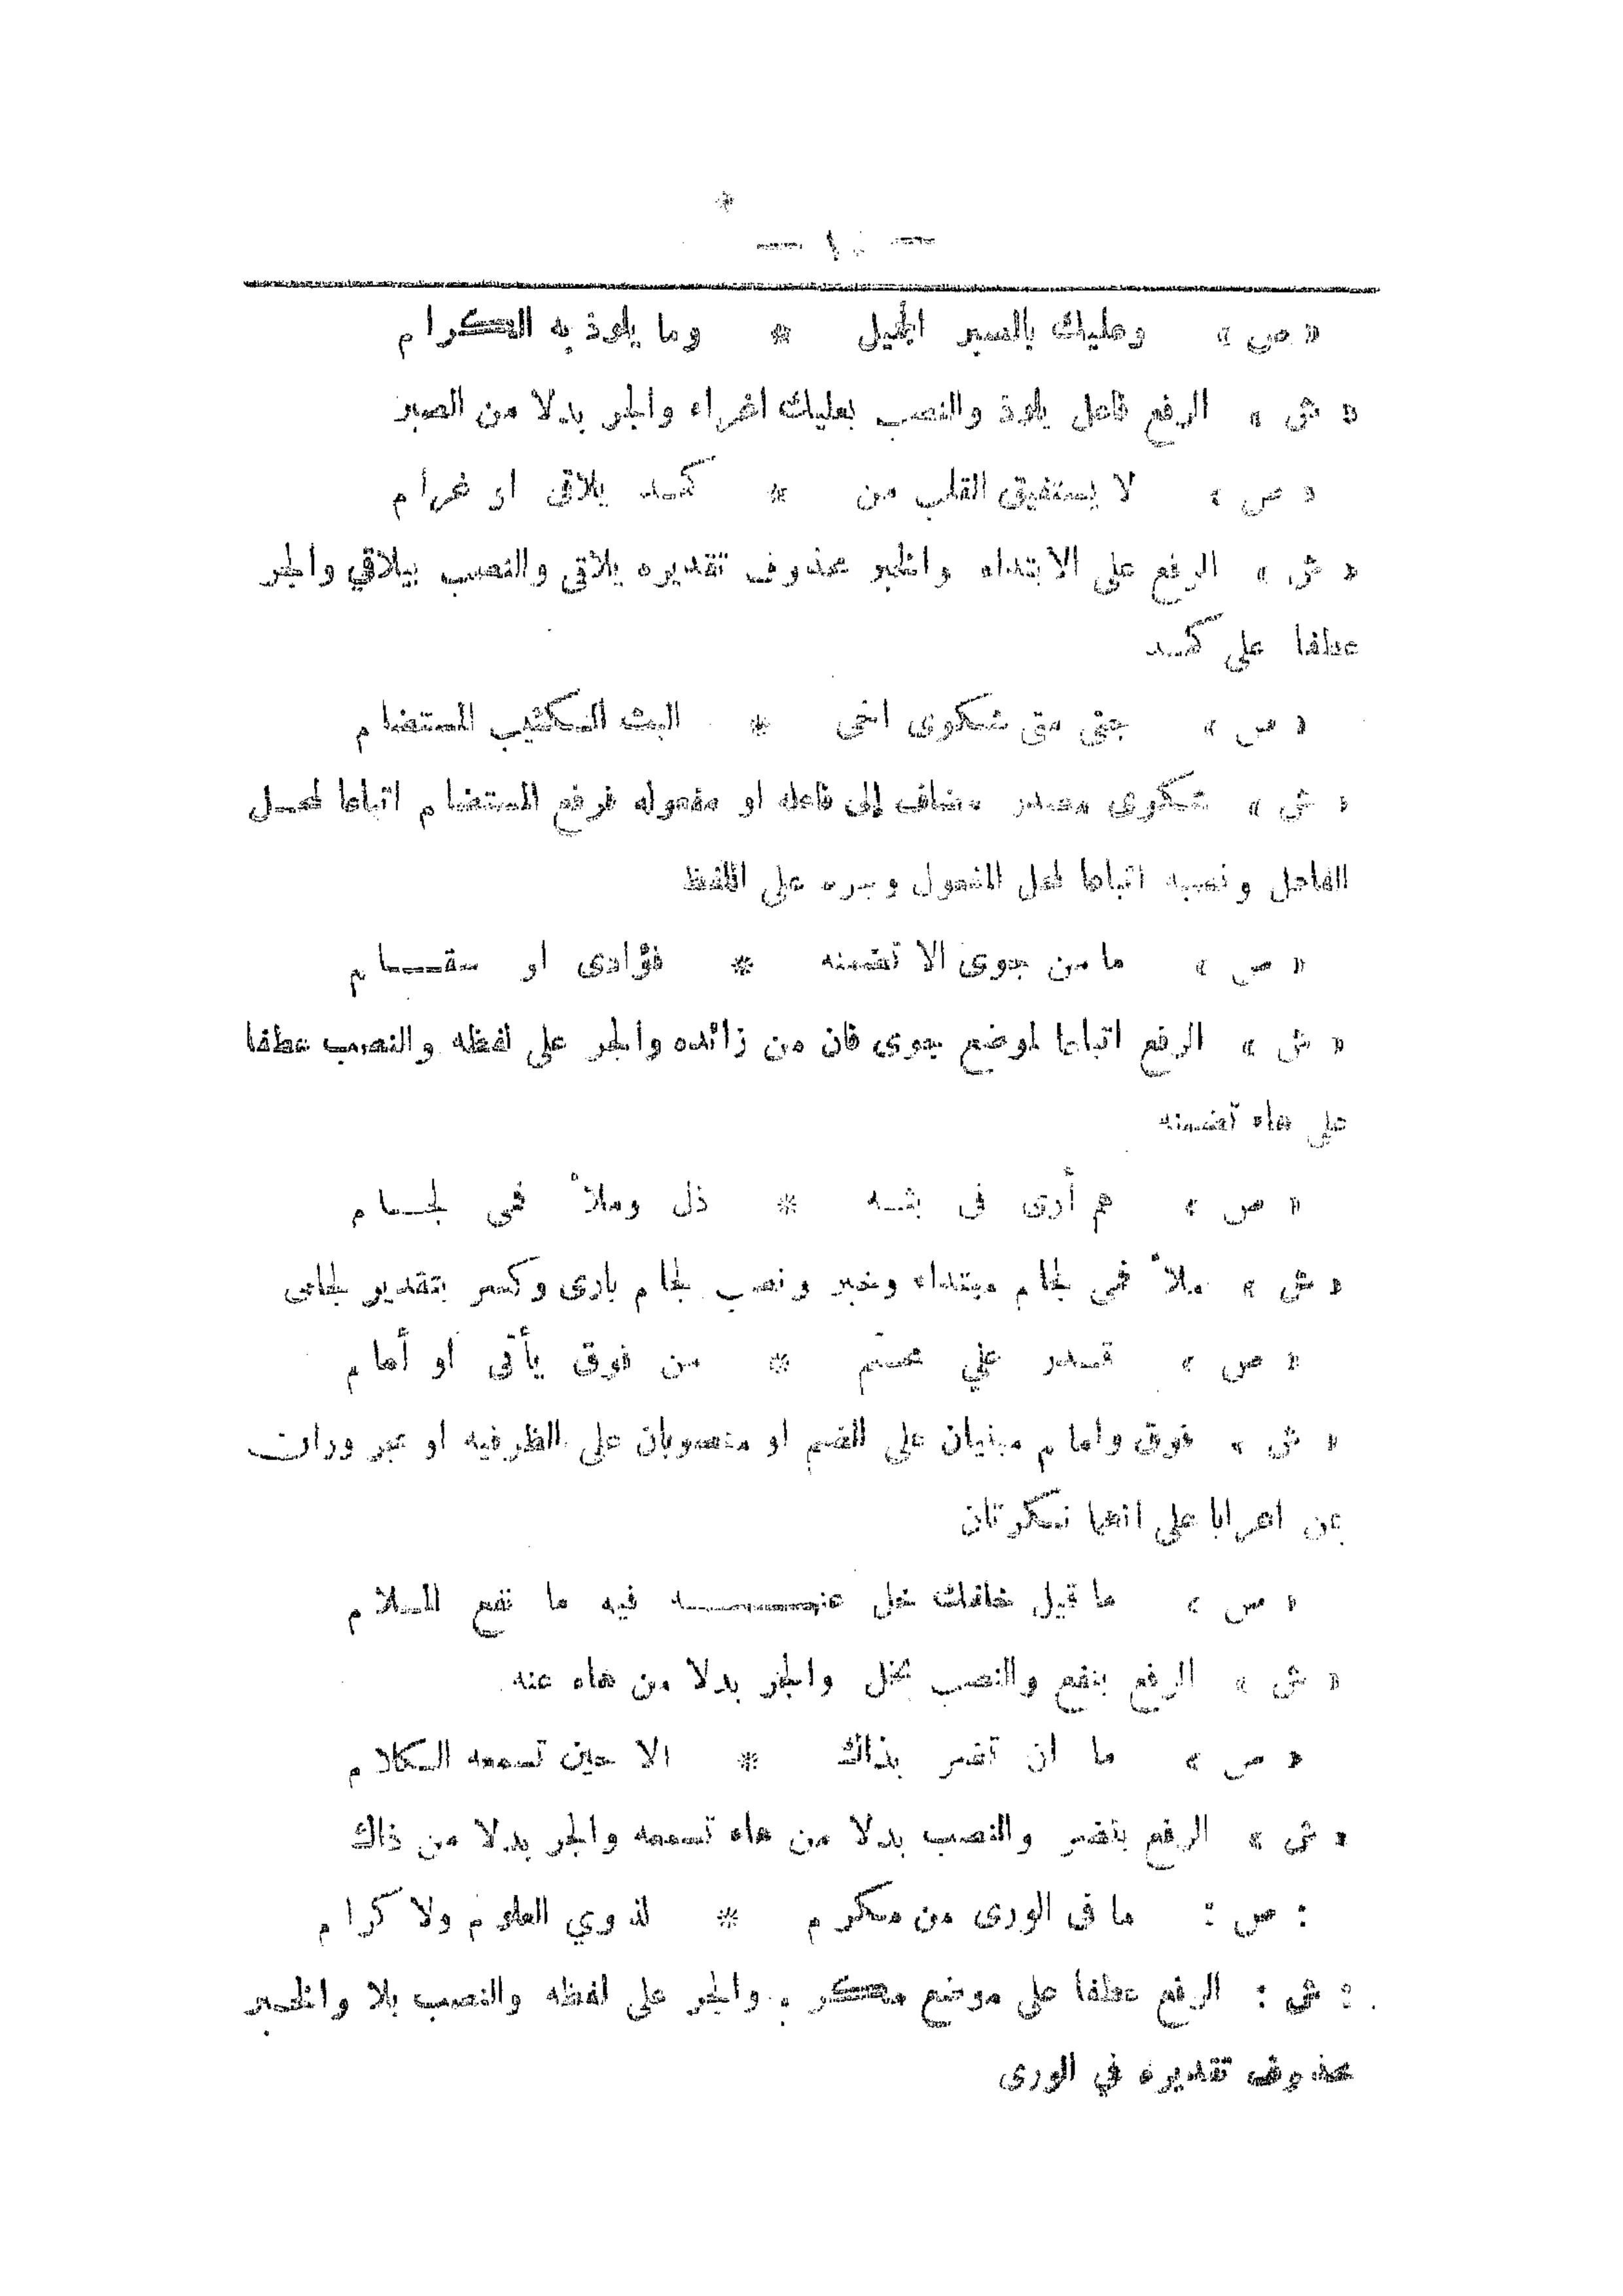 — ١٠ —
« ص » وعليك بالصبر الجميل * وما يلوذ به الكرام
« ش » الرفع فاعل يلوذ والنصب بعليك اغراء والجر بدلا من الصبر
« ص » لا يستفيق القلب من * كمد يلاقى او غرام
« ش » الرفع على الابتداء والخبر محذوف تقديره يلاقى والنصب بيلاقي والجر
عطفا على كمد
« ص » حتى متى شكوى اخى * البث الكئيب المستضام
« ش » شكوى مصدر مضاف إلى فاعله او مفعوله فرفع المستضام اتباعا لمحل
الفاعل ونصبه اتباعا لمحل المفعول وجره على اللفظ
« ص » ما من جوى الا تضمنه * فؤادى او سقام
« ش » الرفع اتباعا لموضع جوى فان من زائده والجر على لفظه والنصب عطفا
على هاء تضمنه
« ص » هم أرى فى بثه * ذل وملأ فمى لجام
« ش » ملأ فمى لجام مبتداء وخبر ونصب لجام بارى وكسر بتقدير لجامى
« ص » قدر علي محتم * من فوق يأتى او أمام
« ش » فوق وامام مبنيان على الضم او منصوبان على الظرفيه او مجرورات
بمن اعرابا على انهما نكرتان
« ص » ما قيل خافك خل عنه فيه ما نفع الملام
« ش » الرفع بنفع والنصب بخل والجر بدلا من هاء عنه
« ص » ما ان تضر بذاك * الا حين تسمعه الكلام
« ش » الرفع بتضر والنصب بدلا من هاء تسمعه والجر بدلا من ذاك
: ص : ما فى الورى من مكرم * لذوي العلوم ولا كرام
: ش : الرفع عطفا على موضع مكرم والجر على لفظه والنصب بلا والخبر
محذوف تقديره في الورى